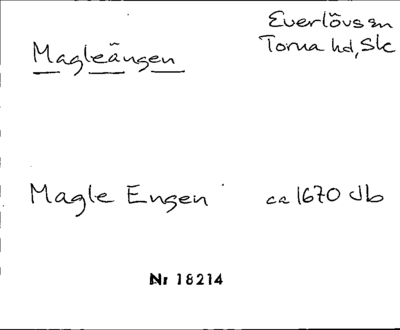 Everlövs sn
Torna hd, Sk
Magleängen
Magle Engen ca 1670 Jb
Nr 18214